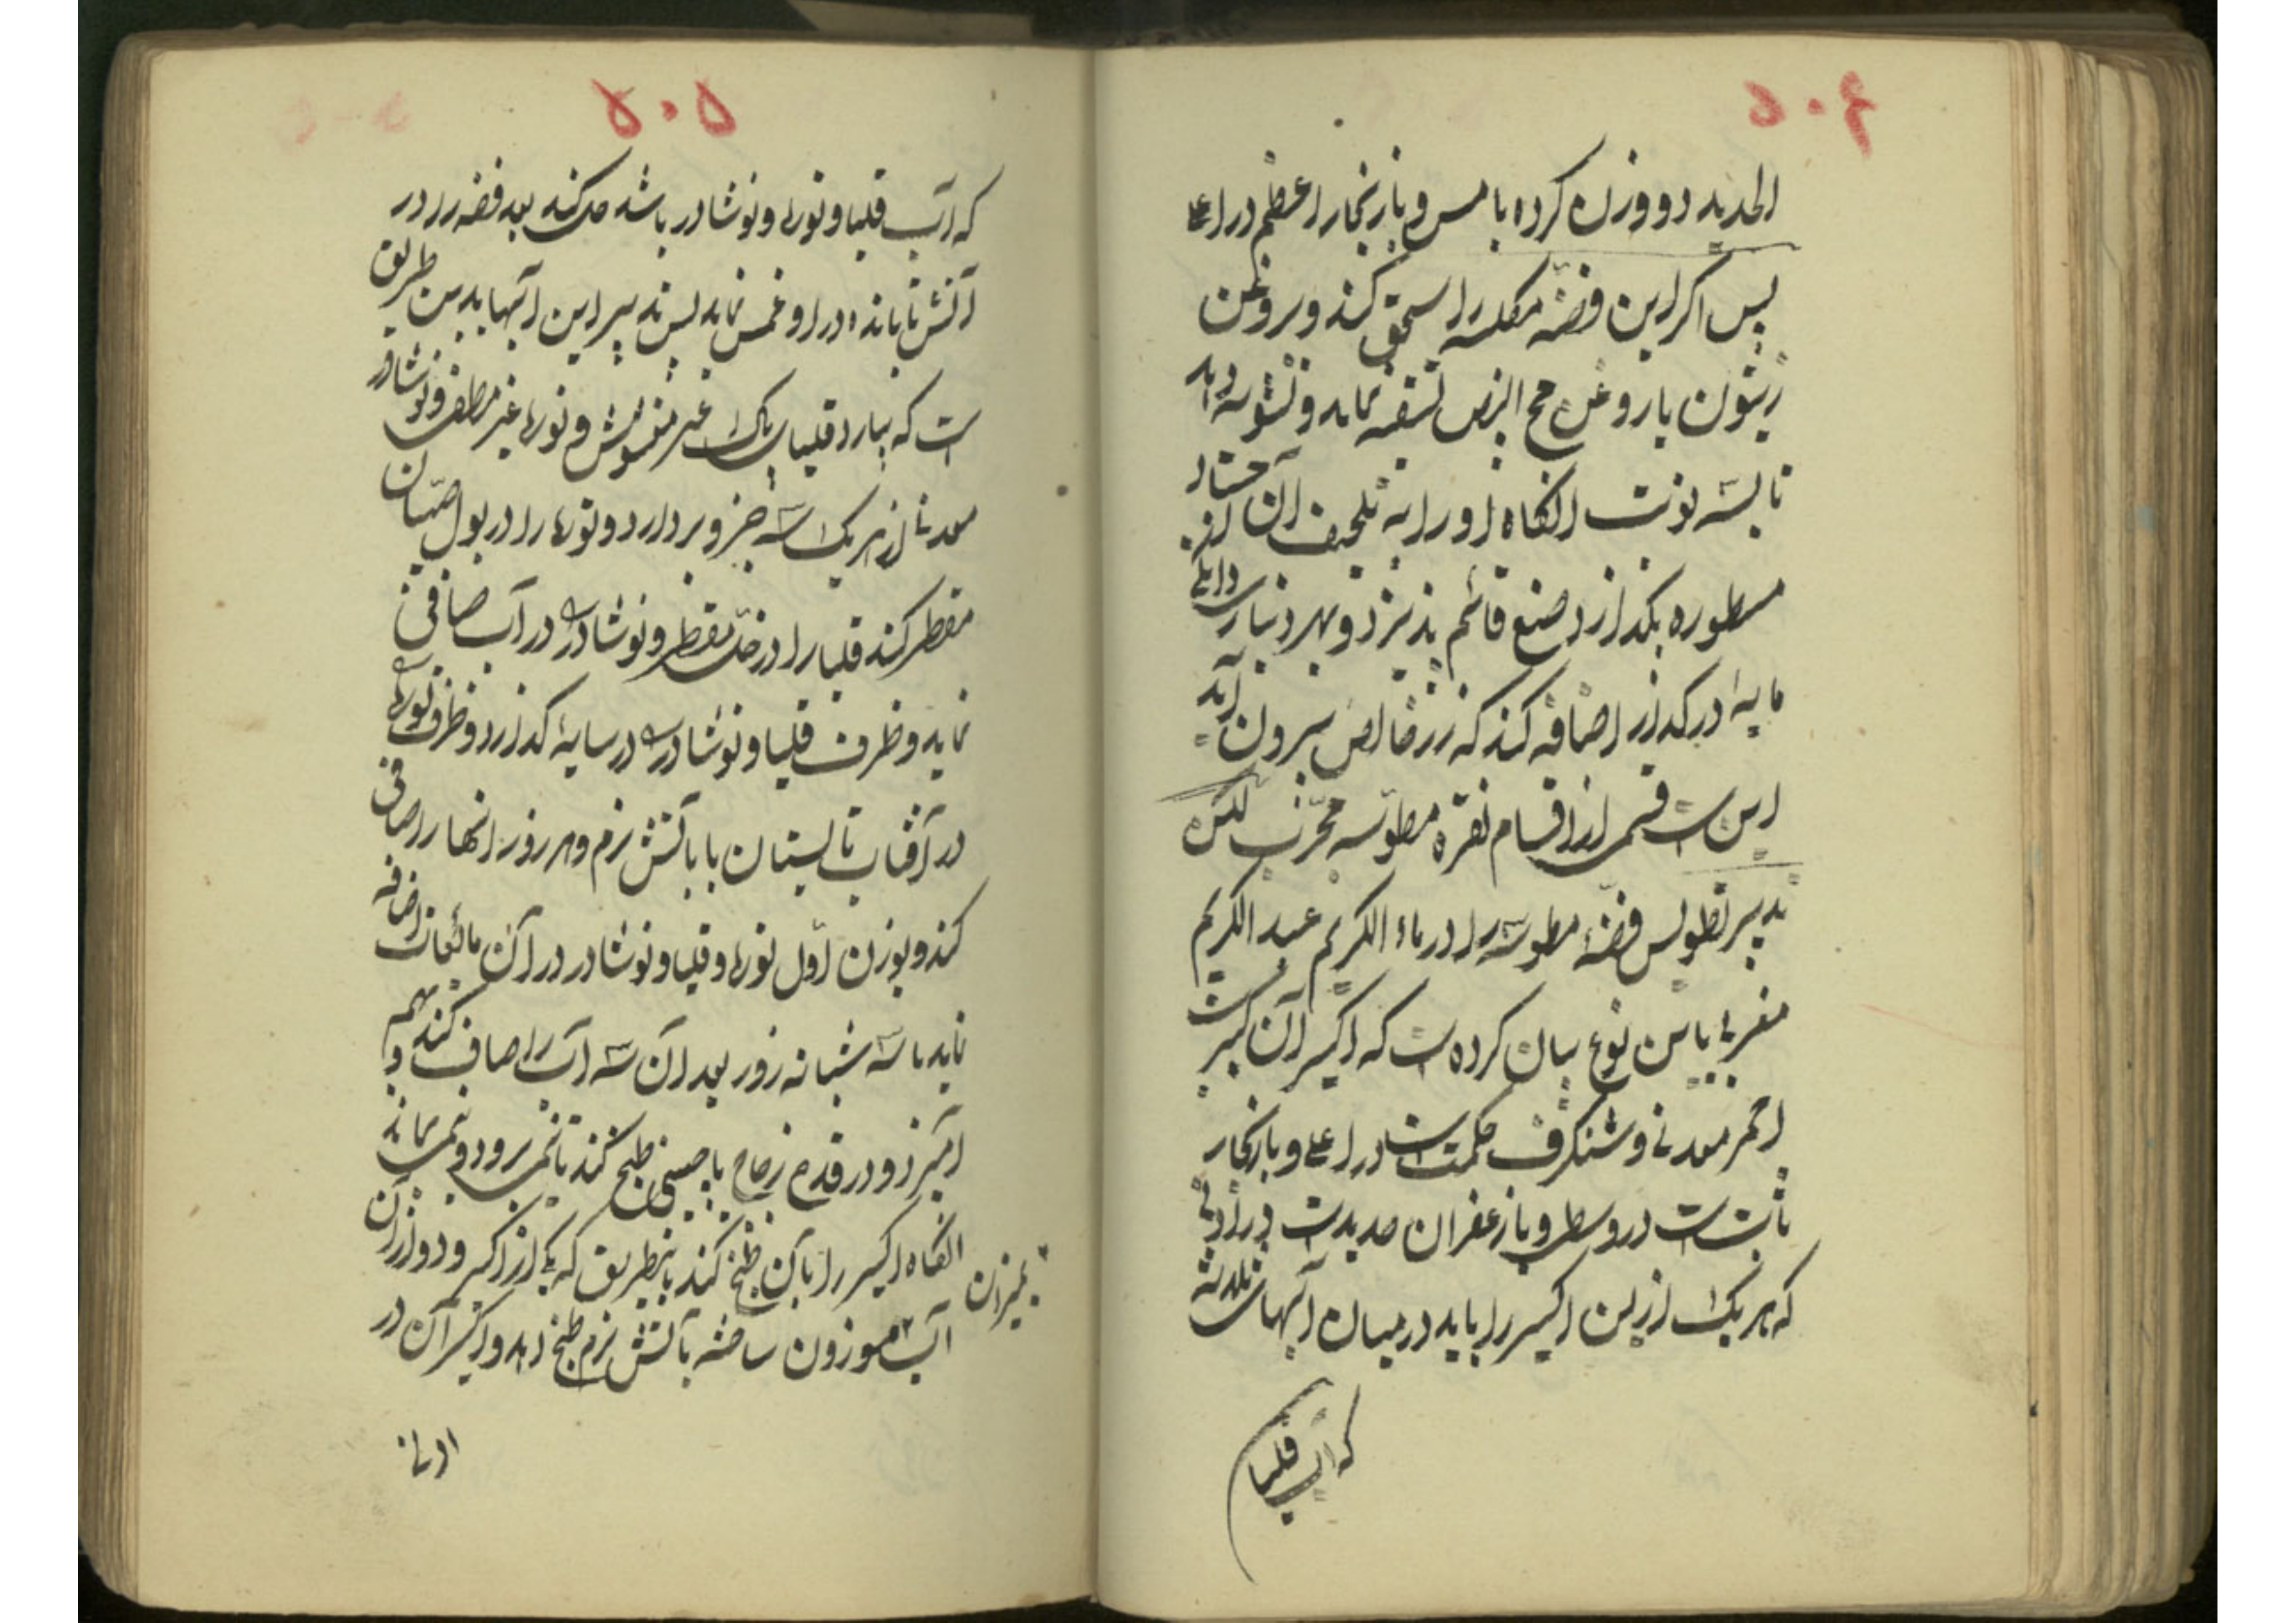 ۵۰۴
الحدید دو وزن کرده با مس و بازنجار اعظم در اعلی
پس اگر این فضه مکلسه را سحق کند و بروغن
زیتون یا روغن مح البیض تسقیه نماید و تشویه دهد
تا بسه نوبت انگاه او را به تلحیف آن جساد
مسطوره بگدازد صبغ قائم پذیرد و بهر دینار
مایه در گداز اضافه کند که زر خالص بیرون آید
این ست قسمی از اقسام نقره مطوسه مجرب لیکن
تدبیر تطویس فضهٔ مطوسه را در ماء الکریم عبد الکریم
مغربی باین نوع بیان کرده ست که اکسیر آن کبریت
احمر معدنی و شنگرف حکمت است در اعلی و بازنجار
ثابت ست در وسط و بازعفران حدیدست در ادنی
که هر یک ازین اکسیر را باید در میان آبهای ثلاثه
که آب قلیا
۵۰۵
که آب قلیا و نوره و نوشادر باشد حل کند بعد فضه را در
آتش تابانده در او غمس نماید پس تدبیر این آبها بدین طریق
ست که بیارد قلیای پاک غیر مغشوش و نوره غیر مطفی و نوشادر
معدنی از هر یک سه جزو بردارد و نوره را در بول صبیان
مقطر کند قلیا را در خل مقطر و نوشادر را در آب صافی
نماید و ظرف قلیا و نوشادر را در سایه گذارد و ظرف نوره را
در آفتاب تابستان یا بآتش نرم و هر روز انها را صافی
کند و بوزن اول نوره و قلیا و نوشادر در آن مائعات اضافه
نماید تا سه شبانه روز بعد آن سه آب را صاف کند و بهم
آمیزد و در قدح زجاج یا چینی طبخ کند تا نیمی برود و نیمی بماند
انگاه اکسیر را بآن طبخ کند باینطریق که یکی از اکسیر و دو از آن
بمیزان
آب موزون ساخته بآتش نرم طبخ دهد و اکسیر آن در